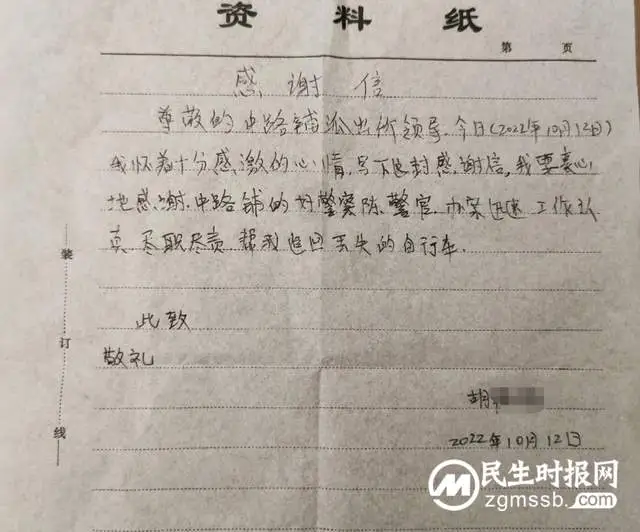 资料纸
第 页
感谢信
尊敬的中路铺派出所领导.今日(2022年10月12日)
我怀着十分感激的心情,写下这封感谢信,我要衷心
地感谢.中路铺的好警察陈警官 办案迅速 工作认
真 尽职尽责 帮我追回丢失的自行车.
此致
敬礼
胡
2022年10月12日
装
订
线
民生时报网
zgmssb.com